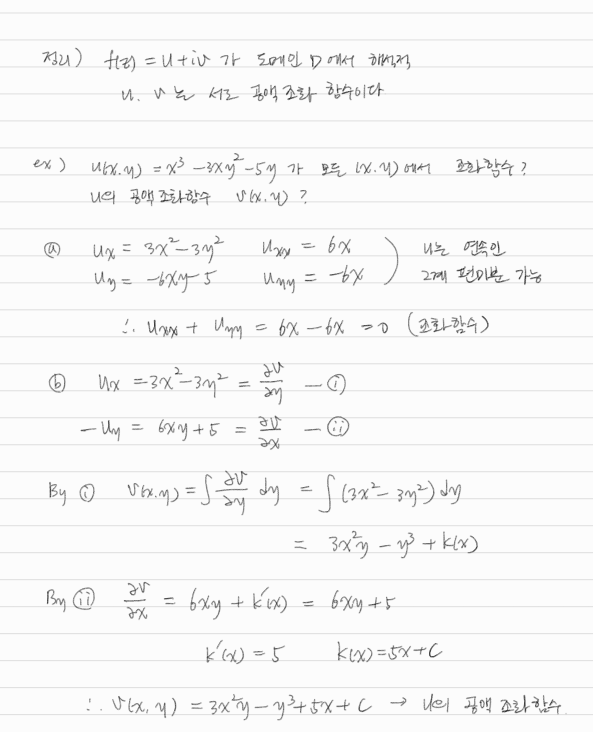 정리) f(z) = u+iv 가 도메인 D에서 해석적
u. v 는 서로 공액 조화 함수이다
ex) u(x.y) = x³ -3xy² -5y 가 모든 (x.y)에서 조화함수?
u의 공액조화함수 v(x.y)?
ⓐ ux = 3x²-3y² uxx = 6x ) u는 연속인
uy = -6xy-5 uyy = -6x 2계 편미분 가능
∴ uxx + uyy = 6x - 6x = 0 (조화함수)
ⓑ ux = 3x²-3y² = ∂v/∂y — ⓘ
-uy = 6xy+5 = ∂v/∂x — ⓘⓘ
By ⓘ v(x.y) = ∫ ∂v/∂y dy = ∫ (3x²-3y²) dy
= 3x²y - y³ + k(x)
By ⓘⓘ ∂v/∂x = 6xy + k'(x) = 6xy+5
k'(x) = 5 k(x) = 5x+C
∴ v(x, y) = 3x²y - y³ + 5x + C → u의 공액 조화함수.